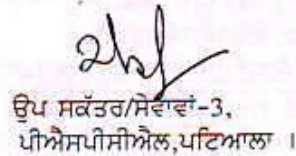 ਉਪ ਸਕੱਤਰ/ਸੇਵਾਵਾਂ-3,
ਪੀਐਸਪੀਸੀਐਲ,ਪਟਿਆਲਾ ।